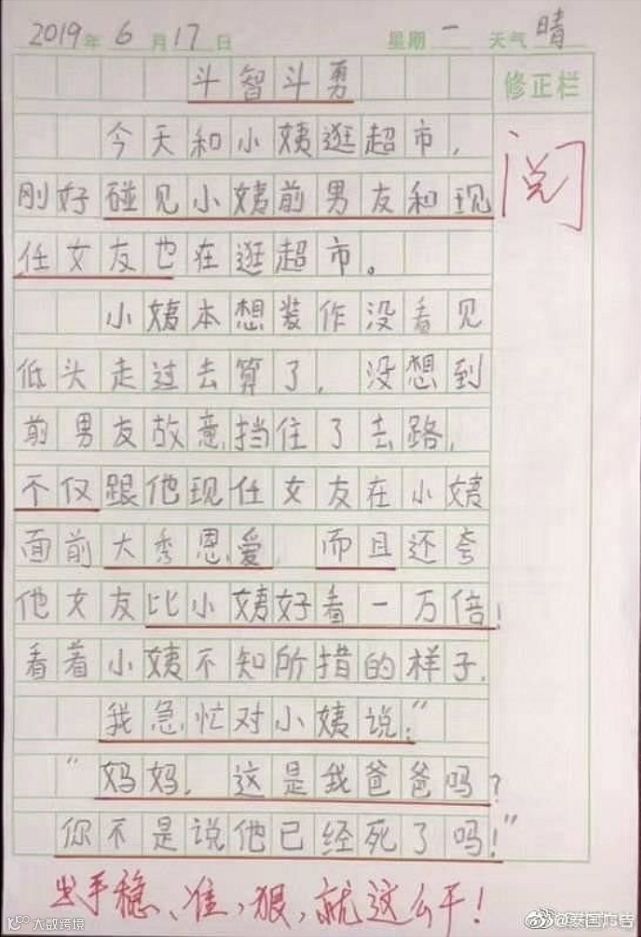 2019年6月17日 星期一 天气晴
斗智斗勇
修正栏
今天和小姨逛超市,
阅
刚好碰见小姨前男友和现
任女友也在逛超市。
小姨本想装作没看见
低头走过去算了,没想到
前男友故意挡住了去路,
不仅跟他现任女友在小姨
面前大秀恩爱,而且还夸
他女友比小姨好看一万倍!
看着小姨不知所措的样子,
我急忙对小姨说:"
"妈妈,这是我爸爸吗?
你不是说他已经死了吗!"
出手稳、准,狠,就这么干!
大数跨境